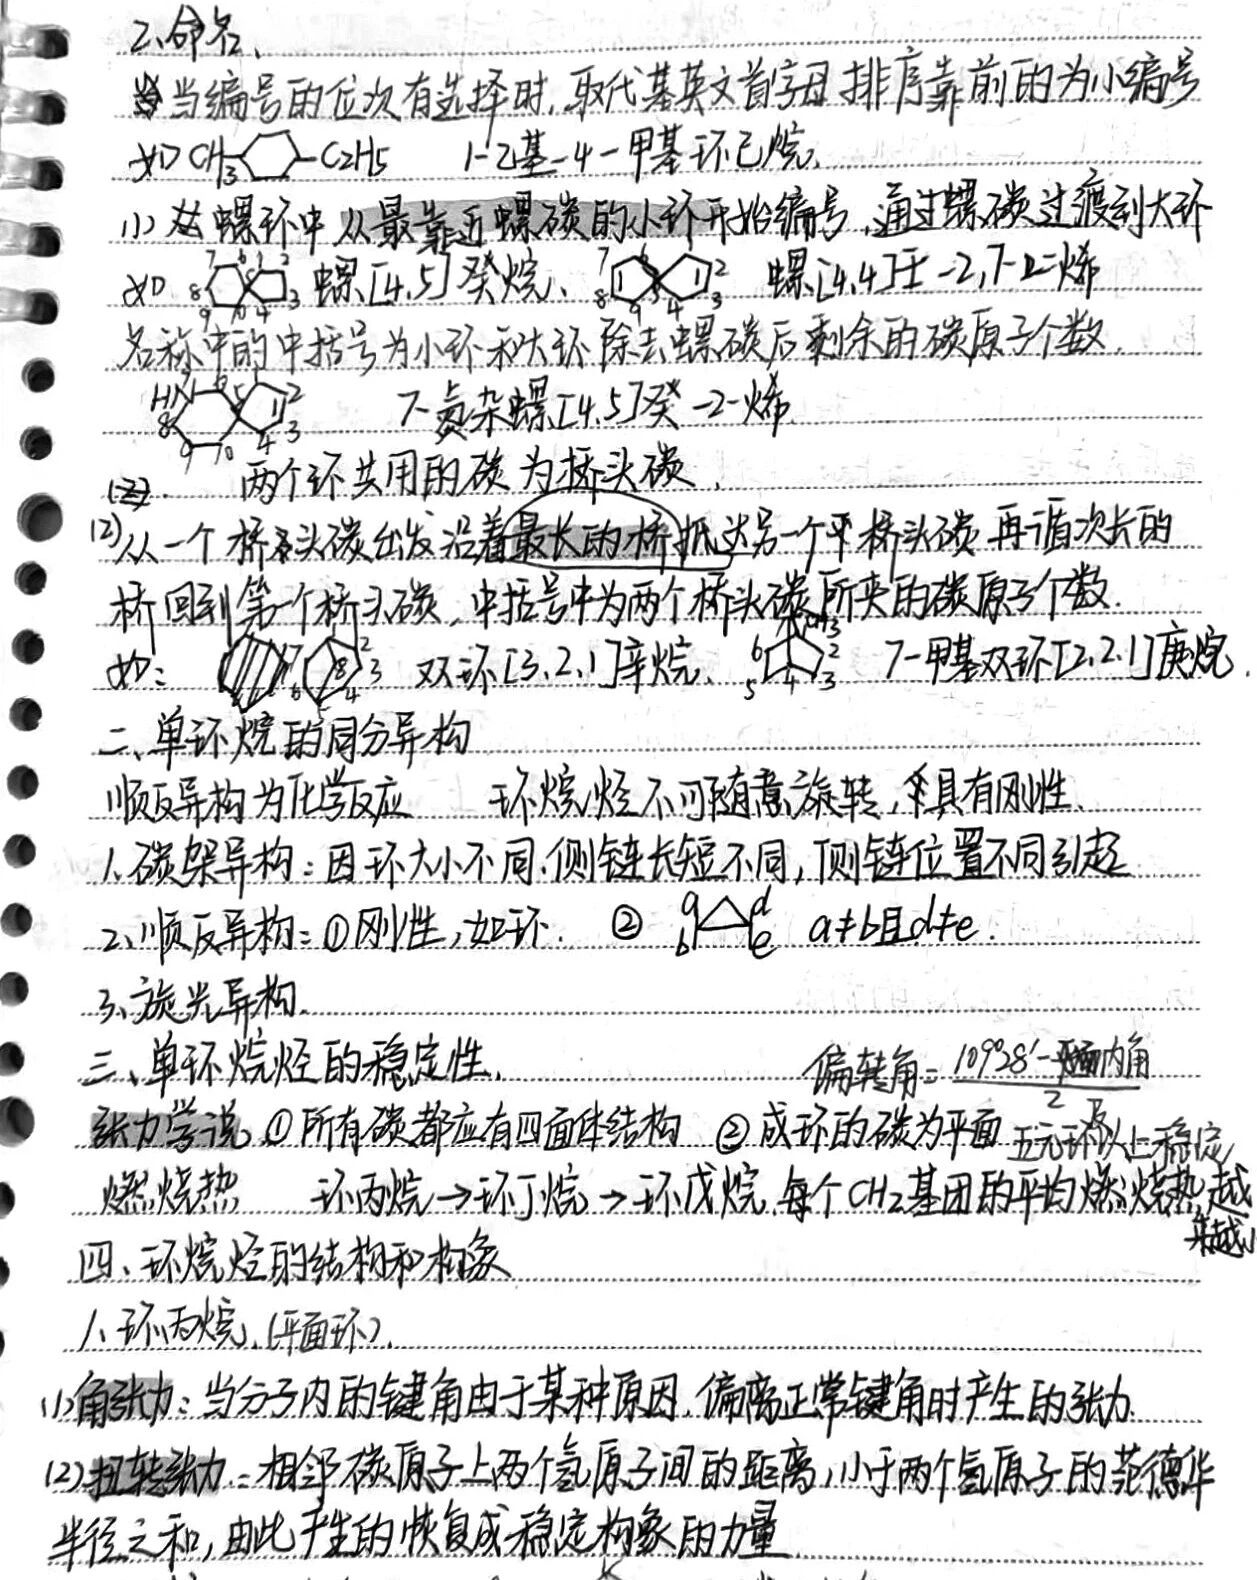 2、命名、
当编号的位次有选择时,取代基英文首字母排序靠前的为小编号
如 CH3 C2H5 1-乙基-4-甲基环己烷.
(1) 螺环中从最靠近螺碳的小环开始编号,通过螺碳过渡到大环
如 7 6 1 2 8 5 3 9 10 4 螺[4,5]癸烷、 7 6 1 2 8 5 3 9 4 螺[4,4]壬-2,7-二烯
名称中的中括号为小环和大环除去螺碳后剩余的碳原子个数.
HN 6 5 1 2 8 3 9 10 4 7-氮杂螺[4,5]癸-2-烯
两个环共用的碳为桥头碳.
(2)从一个桥头碳出发沿着最长的桥抵达另一个桥头碳再循次长的
桥回到第一个桥头碳,中括号中为两个桥头碳所夹的碳原子个数.
如: 7 1 2 6 8 3 5 4 双环[3,2,1]辛烷、 CH3 6 2 5 4 3 7-甲基双环[2,2,1]庚烷.
二、单环烷的同分异构
顺反异构为化学反应 环烷烃不可随意旋转,具有刚性.
1、碳架异构:因环大小不同.侧链长短不同,侧链位置不同引起
2、顺反异构:①刚性,如环. ② a b d e a≠b且d≠e.
3、旋光异构.
三、单环烷烃的稳定性.
偏转角=109°28′-内角/2
张力学说 ①所有碳都应有四面体结构 ②成环的碳为平面 五元环及以上稳定
燃烧热 环丙烷→环丁烷→环戊烷.每个CH2基团的平均燃烧热越
来越小
四、环烷烃的结构和构象
1、环丙烷.(平面环).
(1)角张力:当分子内的键角由于某种原因.偏离正常键角时产生的张力.
(2)扭转张力:相邻碳原子上两个氢原子间的距离,小于两个氢原子的范德华
半径之和,由此产生的恢复成稳定构象的力量.